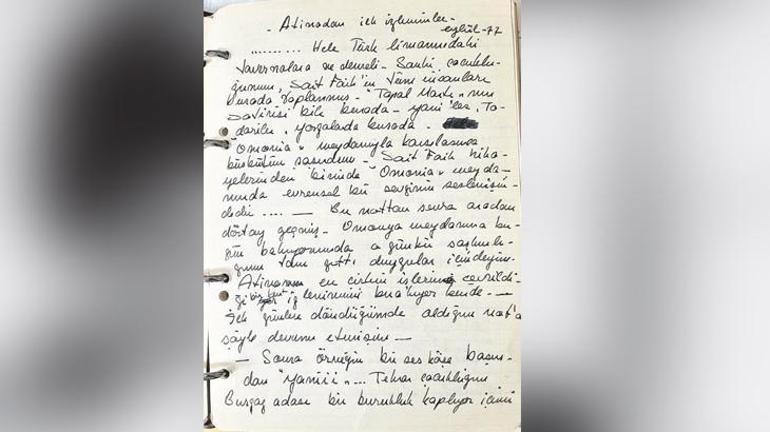 - Atinadan ilk izlenimler -
eylül - 77
......... Hele Türk limanındaki
tavernalara ne demeli - Sanki çocuklu-
ğumun, Sait Faik'in tüm insanları
burada toplanmış - "Topal Martı" nın
bile burada - yani'ler, To-
dorilar, yorgolarda burada -
"Omonia" meydanıyla karşılaşınca
büsbütün şaşırdım - Sait Faik hika-
yelerinden birinde "Omonia" meyda-
nında evrensel bir sevginin
dedir .... — Bu nottan sonra aradan
dört ay geçmiş - Omonya meydanına bu-
gün bakıyorumda o günkü
tam duygular içindeyim -
Atinanın en çirkin işlerin çevrildi-
ği bir yer izlenimini bırakıyor bende - —
ilk günlere döndüğümde aldığım not'a
şöyle devam etmişim —
- Sonra örneğin bir ses köşe başın-
dan "yaniii" ... Tekrar çocukluğum
Burgaz adası bir burukluk kaplıyor içimi